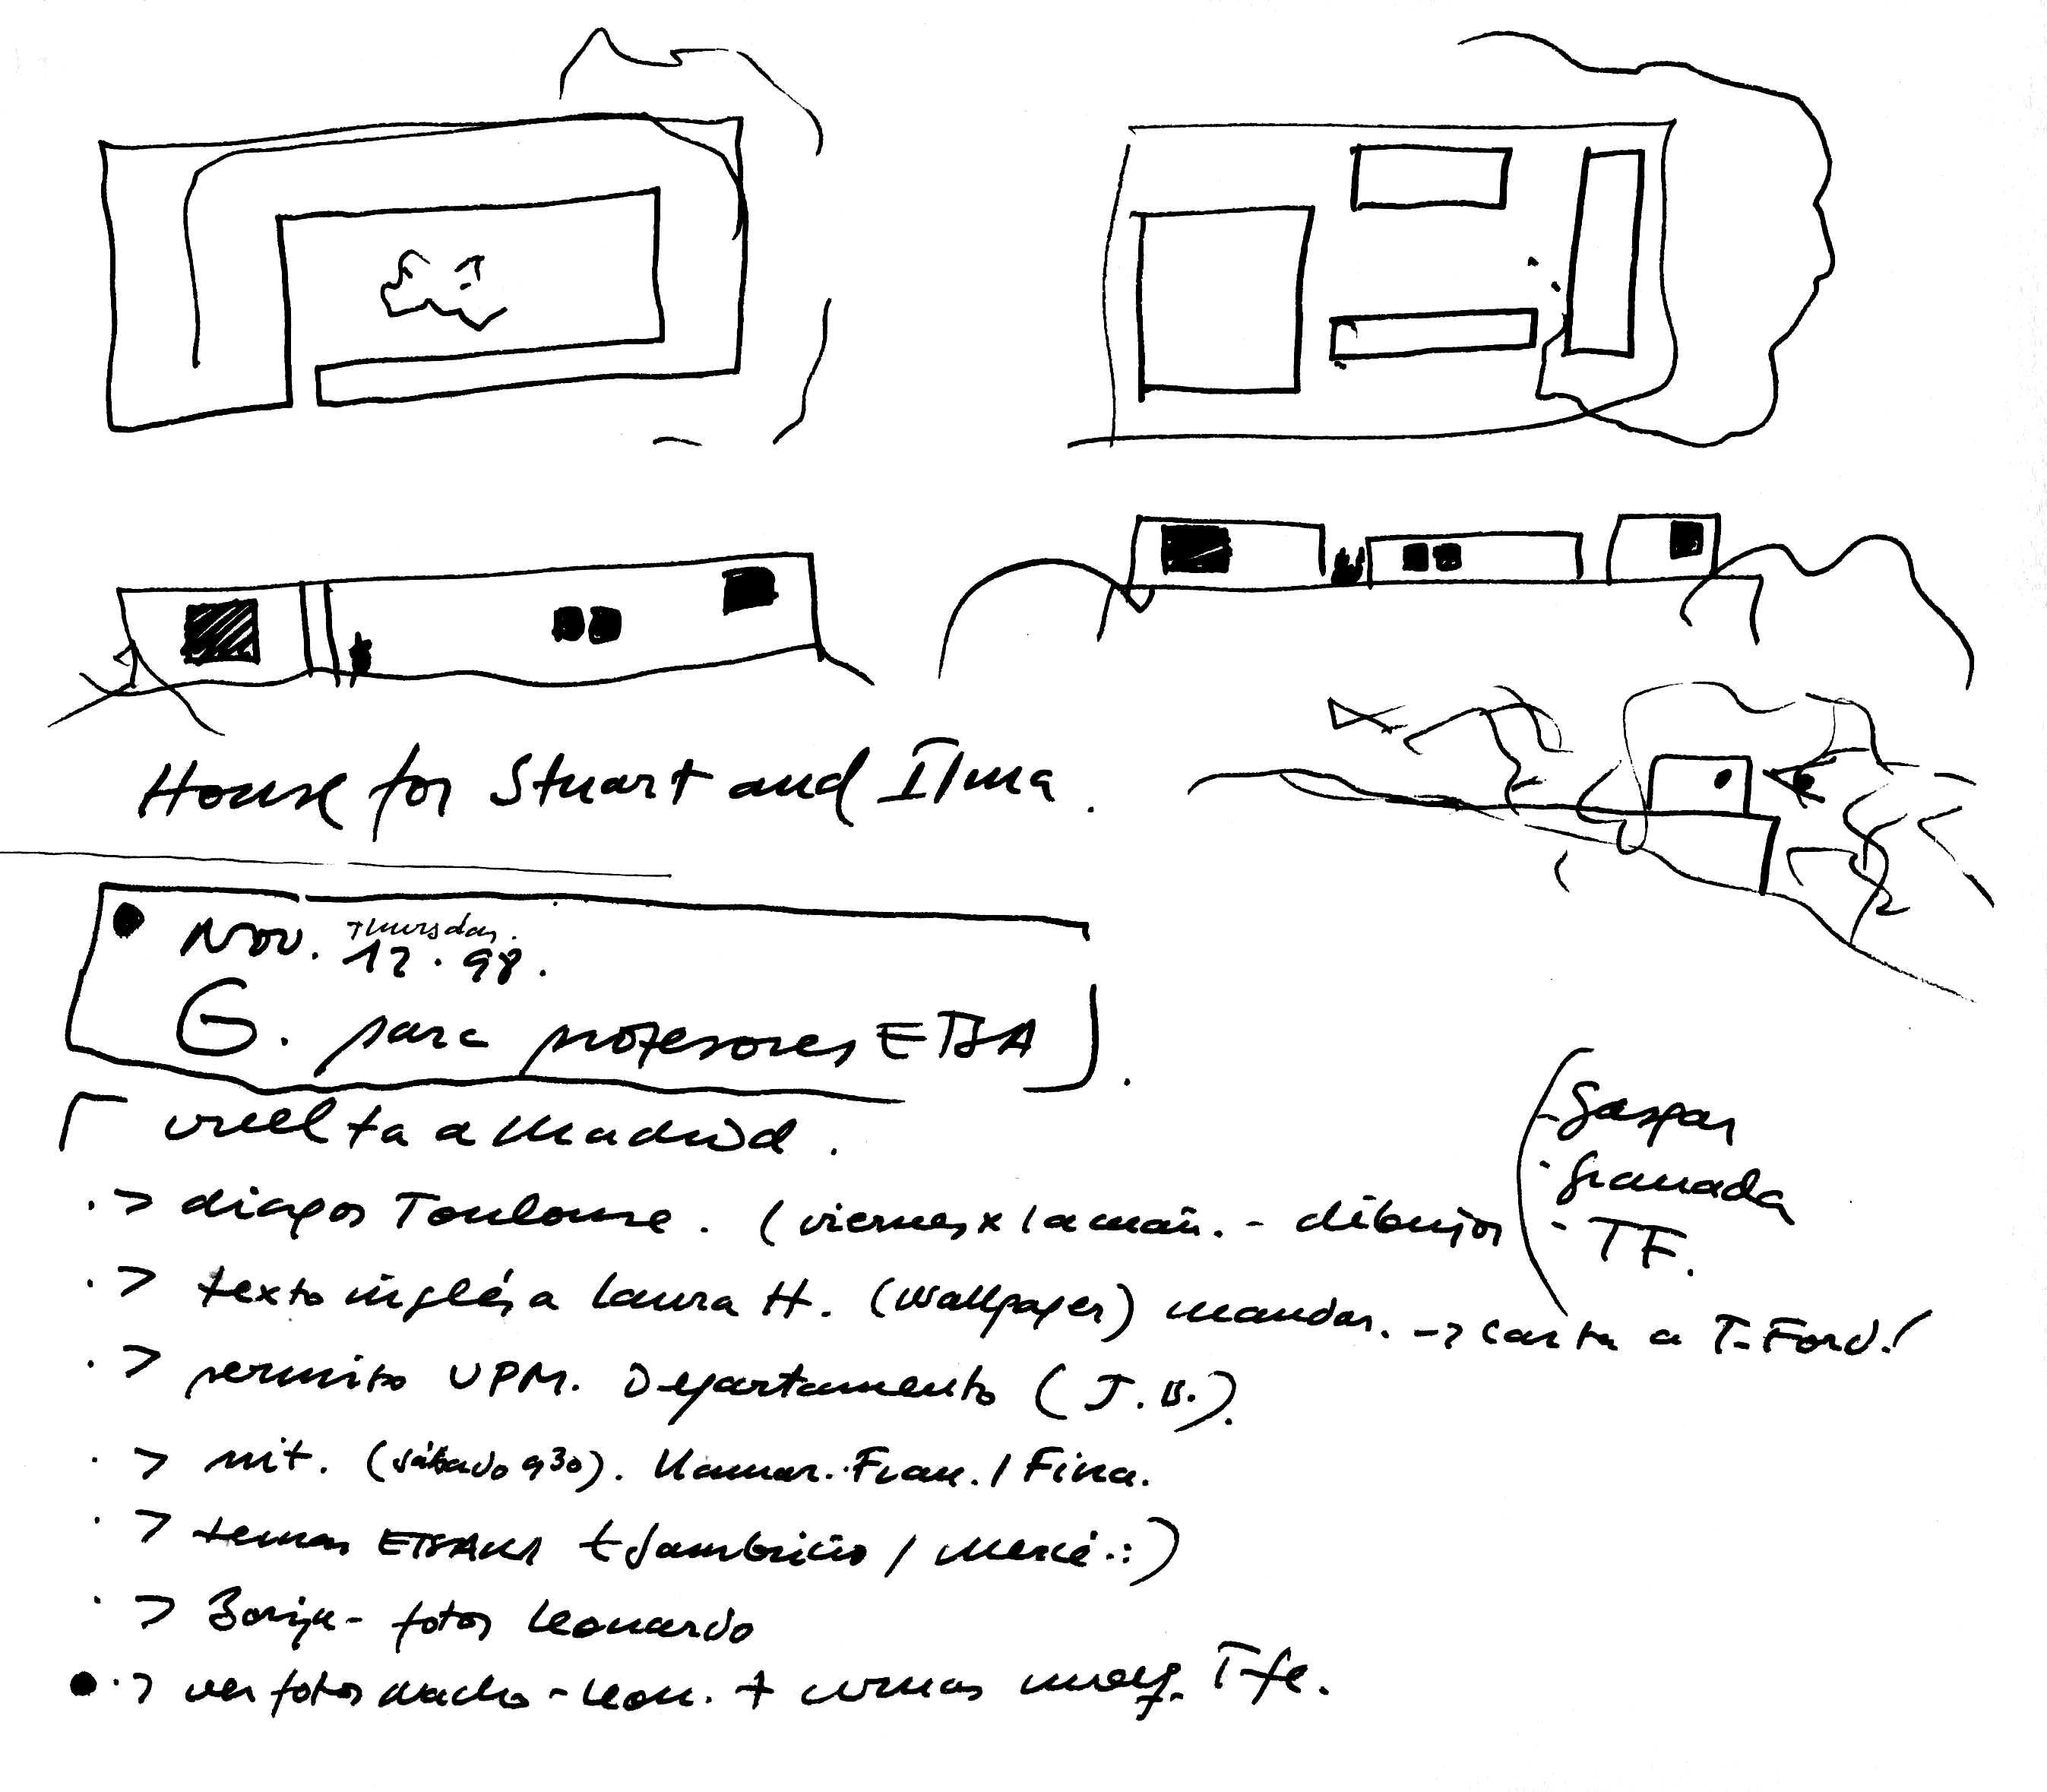 House for Stuart and Ilma.
Nov. Thursday. 12.98.
G. para profesores ETSA.
vuelta a Madrid.
- Gaspar
- Granada
- TF.
.> diapos Toulouse. (viernes x la mañ. - dibujos
.> texto inglés a Laura H. (Wallpaper) mandar. -> carta a T. Ford!
.> permiso UPM. Departamento (J.B.).
.> mit. (sábado 9 30). Llamar. Fran. / Fina.
.> temas ETSAM (Sambricio /
.> Borja - fotos Leonardo
.> ver fotos Nacho - Leon. + Tfe.